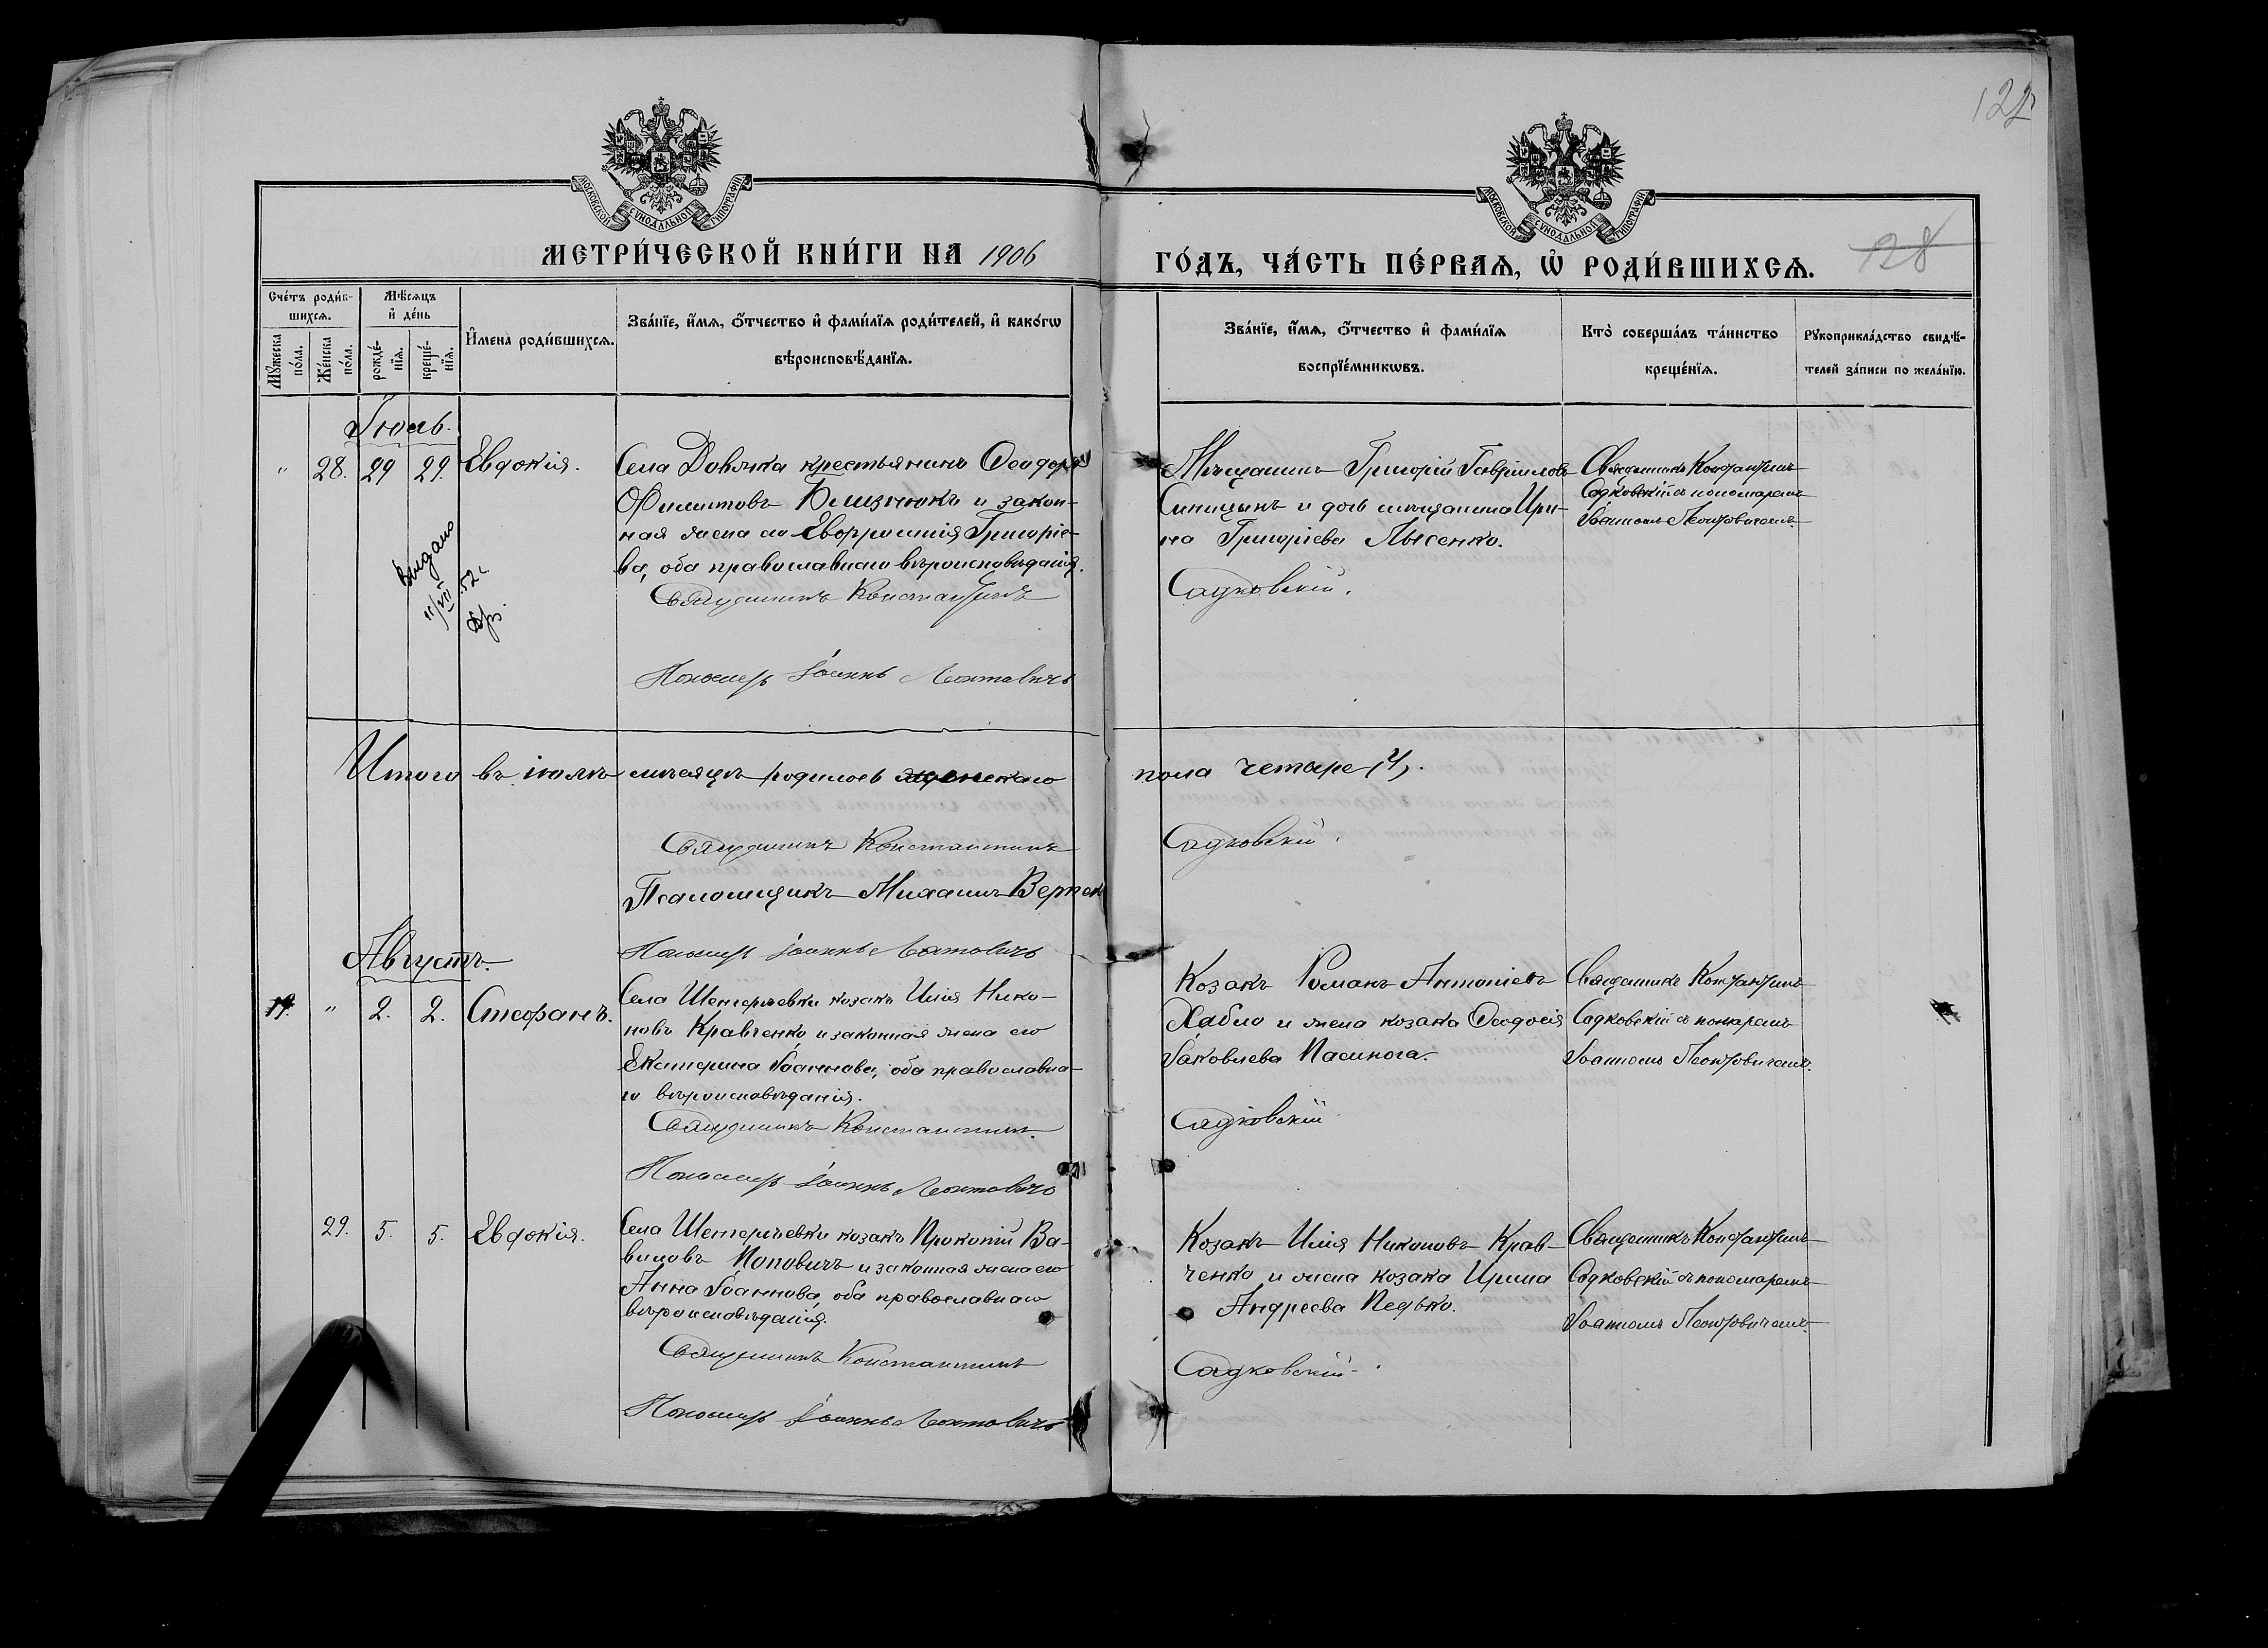 122
МОСКОВСКОЙ СѴНОДАЛЬНОЙ ТИПОГРАФІИ
МОСКОВСКОЙ СѴНОДАЛЬНОЙ ТИПОГРАФІИ
МЕТРИ́ЧЕСКОЙ КНИ́ГИ НА 1906
ГО́ДЪ, ЧА́СТЬ ПЕ́РВАѦ, Ѽ РОДИ́ВШИХСѦ.
128
Сче́тъ роди́в-
шихсѧ.
Мѣ́сѧцъ
и҆ де́нь
Мꙋ́жеска
по́ла.
Же́нска
по́ла.
рожде́-
нїѧ.
креще́-
нїѧ.
И҆мена̀ роди́вшихсѧ.
Зва́нїе, и҆́мѧ, ѻ҆́тчество и҆ фами́лїѧ роди́телей, и҆ како́гѡ
вѣроисповѣ́данїѧ.
Зва́нїе, и҆́мѧ, ѻ҆́тчество и҆ фами́лїѧ
воспрїе́мникѡвъ.
Кто̀ соверша́лъ та́инство
креще́нїѧ.
Рꙋкоприкла́дство свидѣ́-
телей за́писи по жела́нїю.
Іюль.
" 28. 29 29. Евдокія.
Села Довжика крестьянинъ Ѳеодоръ
Филиповъ Близнюкъ и закон-
ная жена его Евфросинія Григоріе-
ва, оба православнаго вѣроисповѣданія.
Священникъ Константинъ
Пономарь Іоаннъ Леонтовичъ
Мѣщанинъ Григорій Гавріиловъ
Синицынъ и дочь мѣщанина Ири-
на Григоріева Лысенко.
Садковскій.
Священникъ Константинъ
Садковскій съ пономаремъ
Іоанномъ Леонтовичемъ.
Видано
11/VII 52 г.
Итого въ іюлѣ мѣсяцѣ родилось женскаго
пола четыре (4).
Священникъ Константинъ
Садковскій.
Псаломщикъ Михаилъ
Пономарь Іоаннъ Леонтовичъ
Августъ.
19. " 2. 2. Стефанъ.
Села Шемержевки козакъ Илія Нико-
новъ Кравченко и законная жена его
Екатерина Іоаннова, оба православна-
го вѣроисповѣданія.
Священникъ Константинъ
Пономарь Іоаннъ Леонтовичъ
Козакъ Романъ Антоніевъ
Хабло и жена козака Ѳеодосія
Іаковлева Пасинога.
Садковскій
Священникъ Константинъ
Садковскій съ пономаремъ
Іоанномъ Леонтовичемъ.
29. 5. 5. Евдокія.
Села Шемержевки козакъ Прокопій Ва-
виловъ Поповичъ и законная жена его
Анна Іоаннова, оба православнаго
вѣроисповѣданія.
Священникъ Константинъ
Пономарь Іоаннъ Леонтовичъ
Козакъ Илія Никоновъ Крав-
ченко и жена козака Ирина
Андреева Педько.
Садковскій.
Священникъ Константинъ
Садковскій съ пономаремъ
Іоанномъ Леонтовичемъ.